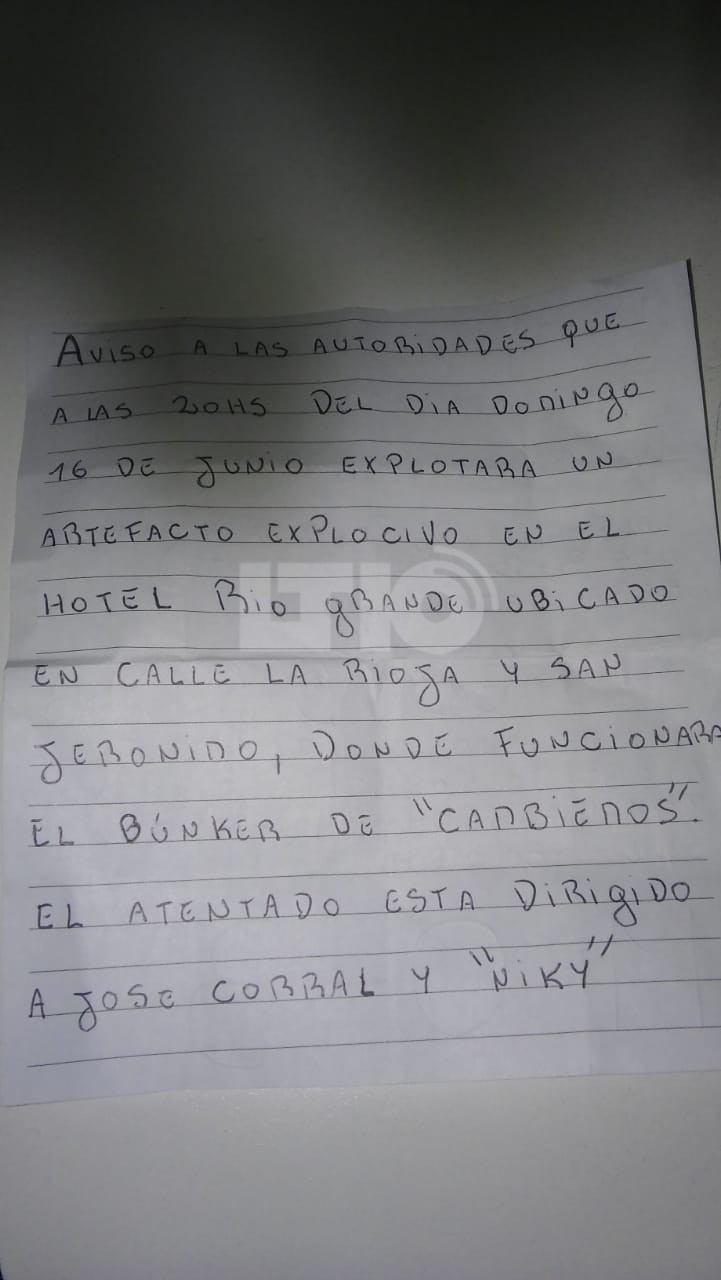 AVISO A LAS AUTORIDADES QUE
A LAS 20HS DEL DIA DOMINGO
16 DE JUNIO EXPLOTARA UN
ARTEFACTO EXPLOCIVO EN EL
HOTEL Rio gRANDE UBICADO
EN CALLE LA RIOJA Y SAN
JERONIMO, DONDE FUNCIONARA
EL BÚNKER DE "CAMBIEMOS".
EL ATENTADO ESTA DIRIgIDO
A JOSE CORRAL Y "NIKY"
LT10